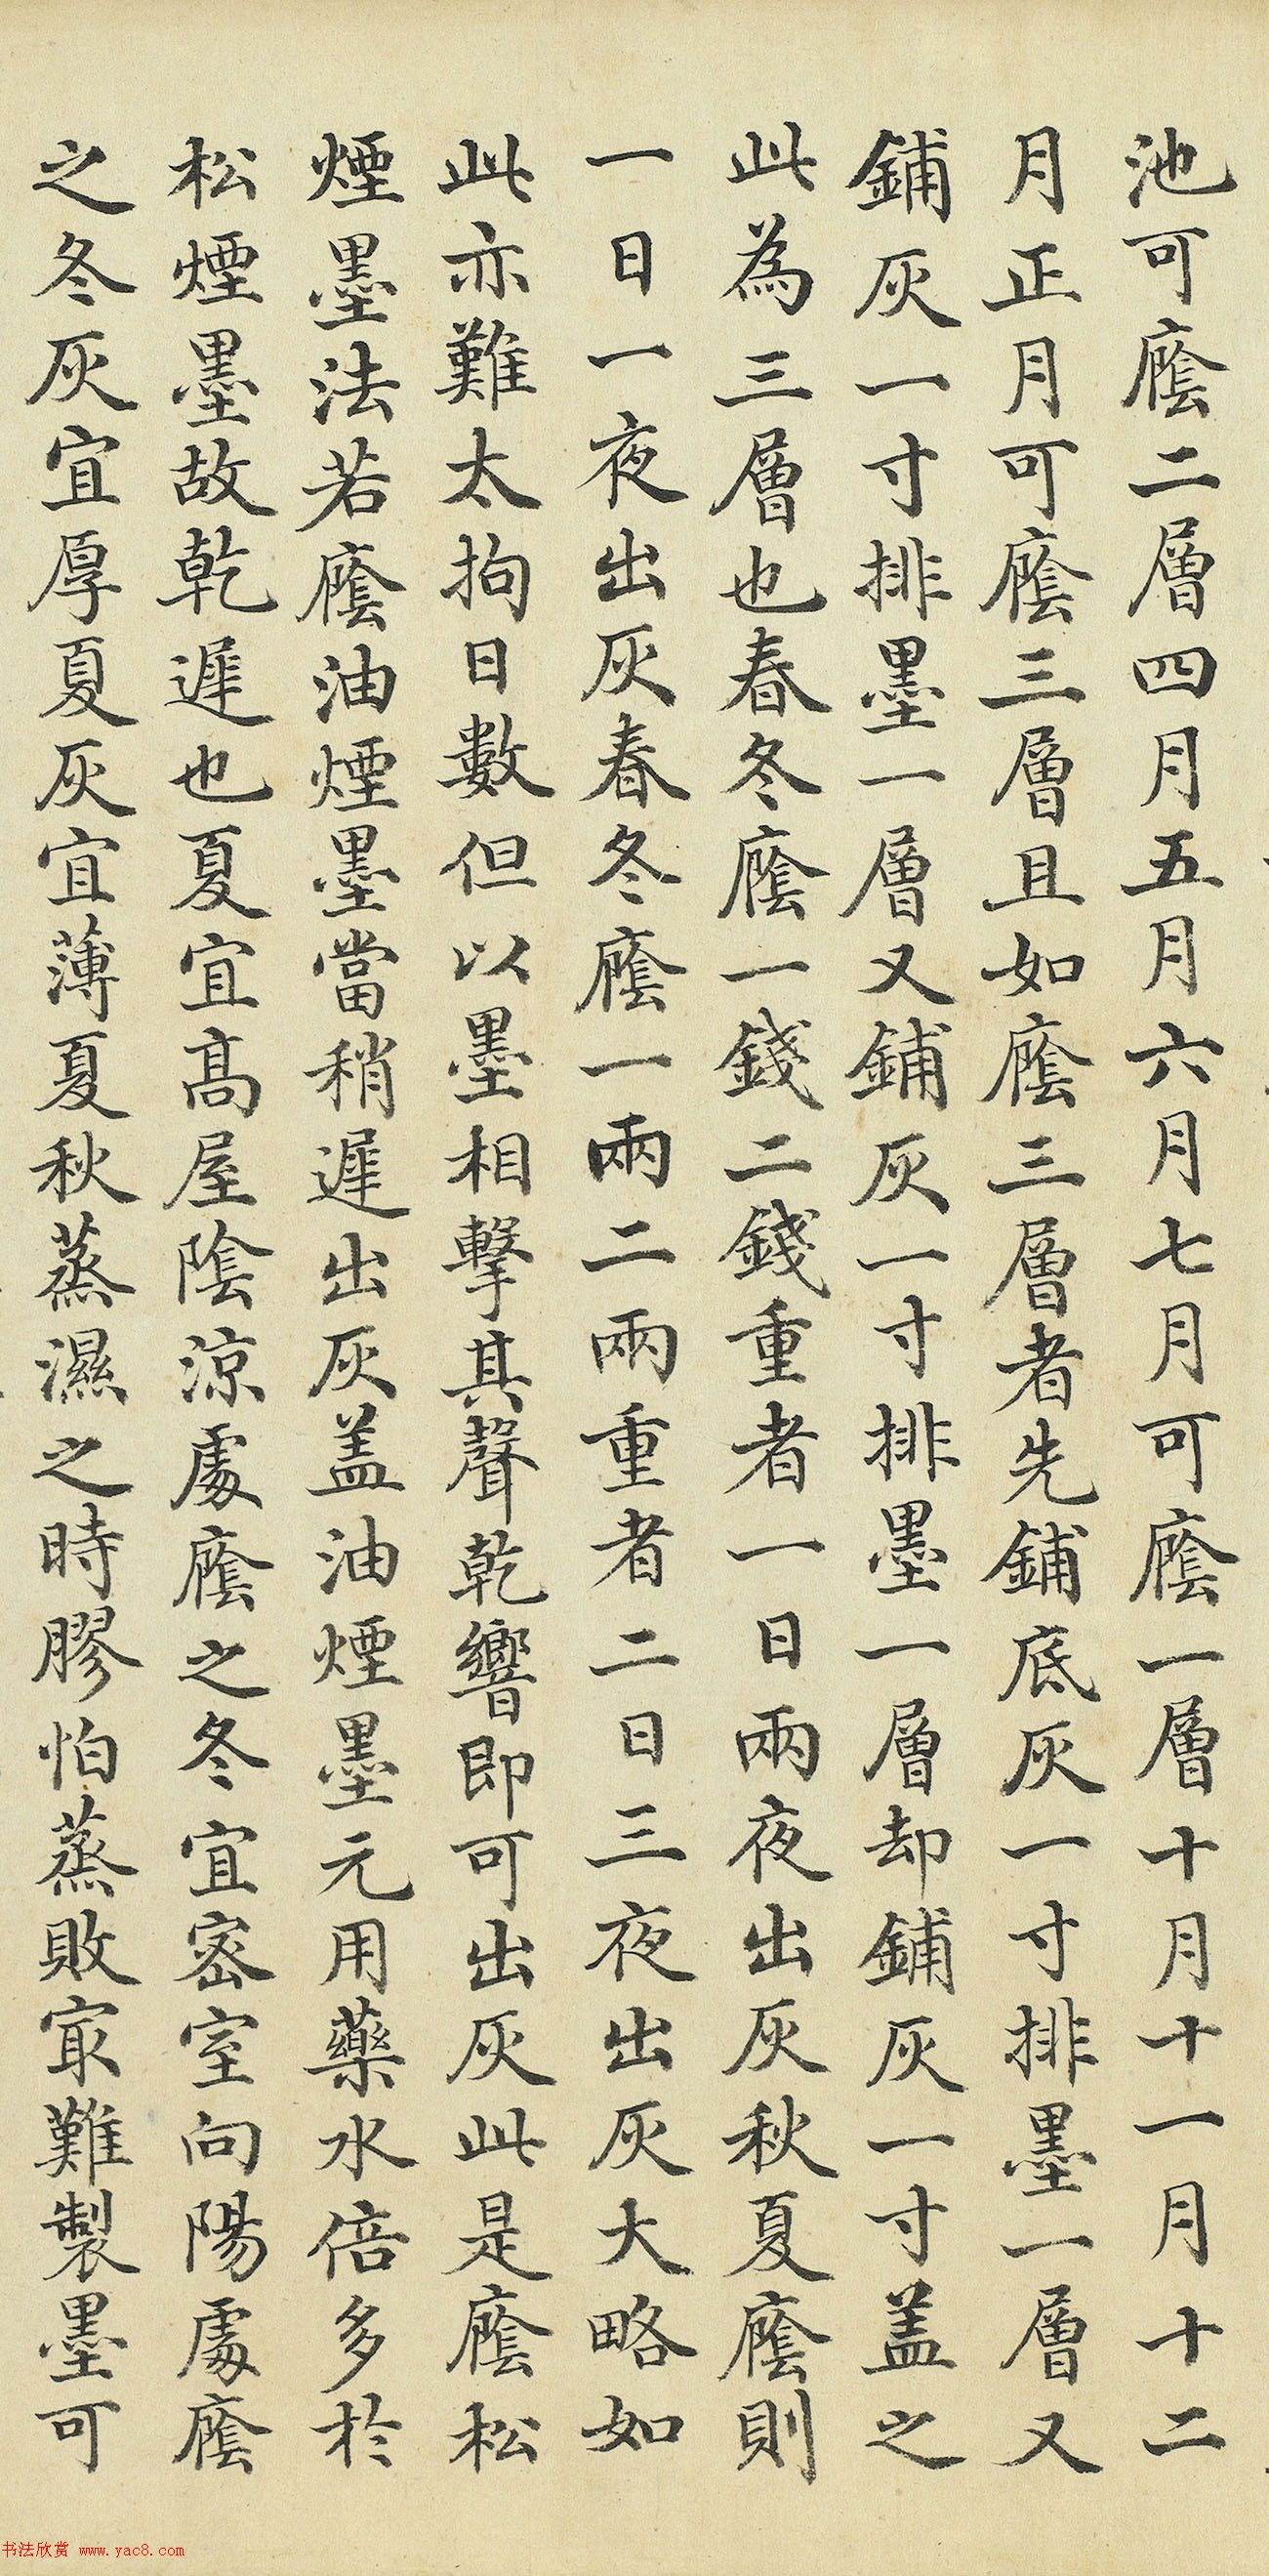 池可廕二層四月五月六月七月可廕一層十月十一月十二
月正月可廕三層且如廕三層者先鋪底灰一寸排墨一層又
鋪灰一寸排墨一層又鋪灰一寸排墨一層却鋪灰一寸盖之
此為三層也春冬廕一錢二錢重者一日兩夜出灰秋夏廕則
一日一夜出灰春冬廕一兩二兩重者二日三夜出灰大略如
此亦難太拘日數但以墨相擊其聲乾響即可出灰此是廕松
煙墨法若廕油煙墨當稍遲出灰盖油煙墨元用藥水倍多於
松煙墨故乾遲也夏宜高屋陰涼處廕之冬宜密室向陽處廕
之冬灰宜厚夏灰宜薄夏秋蒸濕之時膠怕蒸敗冣難製墨可
书法欣赏 www.yac8.com